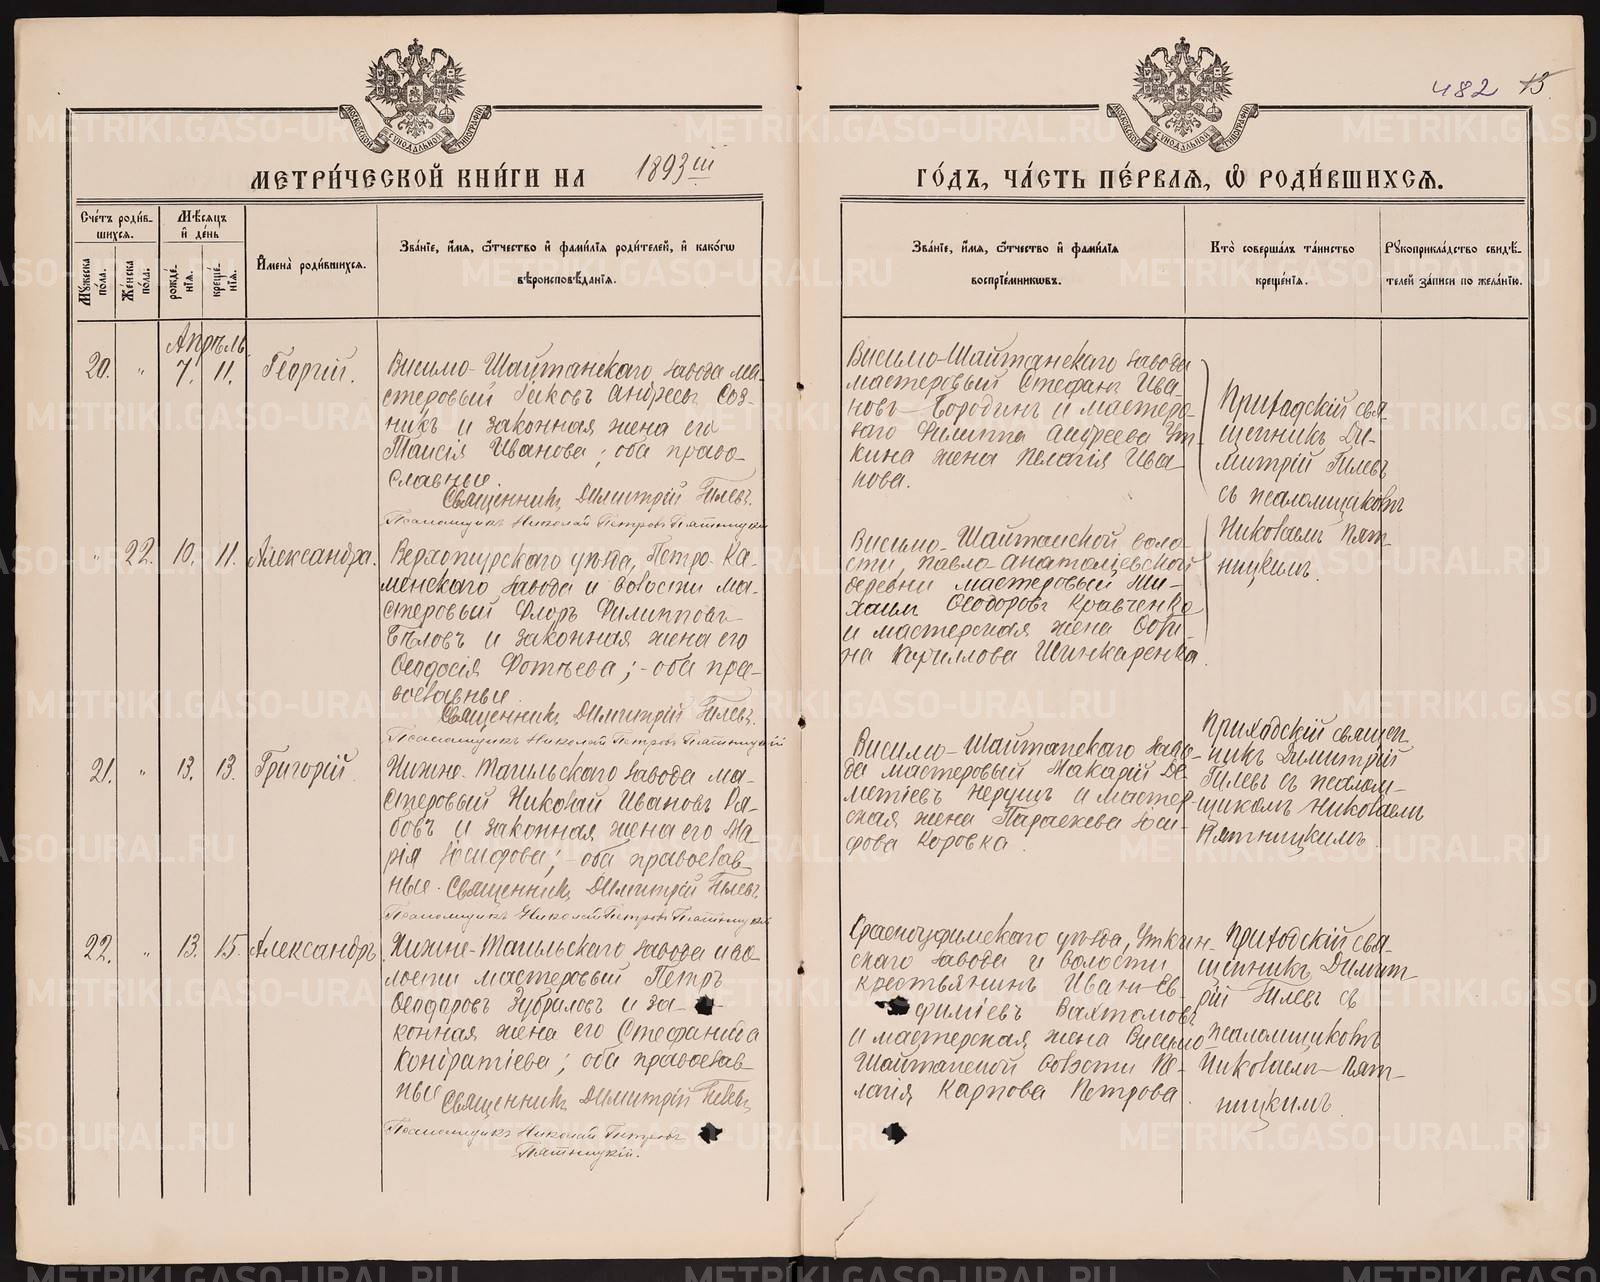 482 13
МОСКОВСКОЙ СѴНОДАЛЬНОЙ ТИПОГРАФІИ
МОСКОВСКОЙ СѴНОДАЛЬНОЙ ТИПОГРАФІИ
МЕТРИ́ЧЕСКОЙ КНИ́ГИ НА 1893 iii
ГО́ДЪ, ЧА́СТЬ ПЕ́РВАЯ, Ѡ РОДИ́ВШИХСЯ.
Сче́тъ роди́в-
шихся.
Мѣ́сяцъ
и де́нь
Мужеска по́ла.
Же́нска по́ла.
рожде́-
нїя.
креще́-
нїя.
Имена̀ роди́вшихся.
Зва́нїе, и́мя, ѻ́тчество и фами́лїя роди́телей, и како́гѡ
вѣроисповѣ́данїя.
Зва́нїе, и́мя, ѻ́тчество и фами́лїя
воспрїе́мникѡвъ.
Кто̀ соверша́лъ та́инство
креще́нїя.
Рукоприкла́дство свидѣ́-
телей за́писи по жела́нїю.
Апрѣль
20. " 7. 11. Георгій.
Висимо-Шайтанскаго завода ма-
стеровый Іаковъ Андреевъ Соз-
никъ и законная жена его
Таисія Иванова; оба право-
славные.
Священникъ Димитрій Гилевъ.
Псаломщикъ Николай Петровъ Пятницкій
Висимо-Шайтанскаго завода
мастеровый Стефанъ Ива-
новъ Бородинъ и мастеро-
ваго Филиппа Андреева Ут-
кина жена Пелагія Ива-
нова.
Приходскій свя-
щенникъ Ди-
митрій Гилевъ
съ псаломщикомъ
Николаемъ Пят-
ницкимъ.
" 22. 10. 11. Александра.
Верхотурскаго уѣзда, Петро-Ка-
менскаго завода и волости ма-
стеровый Флоръ Филипповъ
Бѣловъ и законная жена его
Ѳеодосія Фотѣева; - оба пра-
вославные.
Священникъ Димитрій Гилевъ.
Псаломщикъ Николай Петровъ Пятницкій
Висимо-Шайтанской воло-
сти, Павло-Анатоліевской
деревни мастеровый Ми-
хаилъ Ѳеодоровъ Кравченко
и мастерская жена
на Кириллова Шинкаренка.
21. " 13. 13. Григорій.
Нижне-Тагильскаго завода ма-
стеровый Николай Ивановъ Ря-
бовъ и законная жена его Ма-
рія Іосифова; - оба православ-
ные. Священникъ Димитрій Гилевъ.
Псаломщикъ Николай Петровъ Пятницкій
Висимо-Шайтанскаго заво-
да мастеровый Макарій Де-
ментіевъ и мастер-
ская жена Параскева Іоси-
фова Коровка.
Приходскій священ-
никъ Димитрій
Гилевъ съ псалом-
щикомъ Николаемъ
Пятницкимъ.
22. " 13. 15. Александръ.
Нижне-Тагильскаго завода и во-
лости мастеровый Петръ
Ѳеодоровъ Зубриловъ и за-
конная жена его Стефанида
Кондратіева; оба православ-
ные Священникъ Димитрій Гилевъ
Псаломщикъ Николай Петровъ
Пятницкій.
Красноуфимскаго уѣзда, Уткин-
скаго завода и волости
крестьянинъ Иванъ Ев-
фиміевъ Вахтомовъ
и мастерская жена Висимо-
Шайтанской волости Пе-
лагія Карпова Петрова.
Приходскій свя-
щенникъ Димит-
рій Гилевъ съ
псаломщикомъ
Николаемъ Пят-
ницкимъ.
METRIKI.GASO-URAL.RU